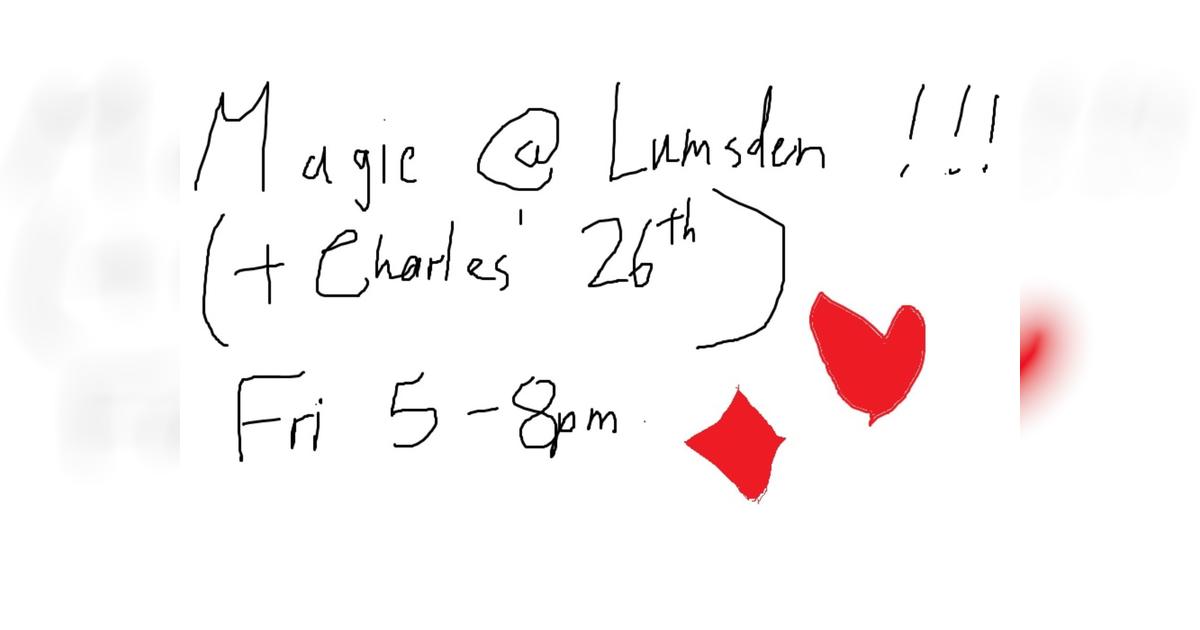 Magic @ Lumsden !!!
(+ Charles' 26th)
Fri 5-8pm